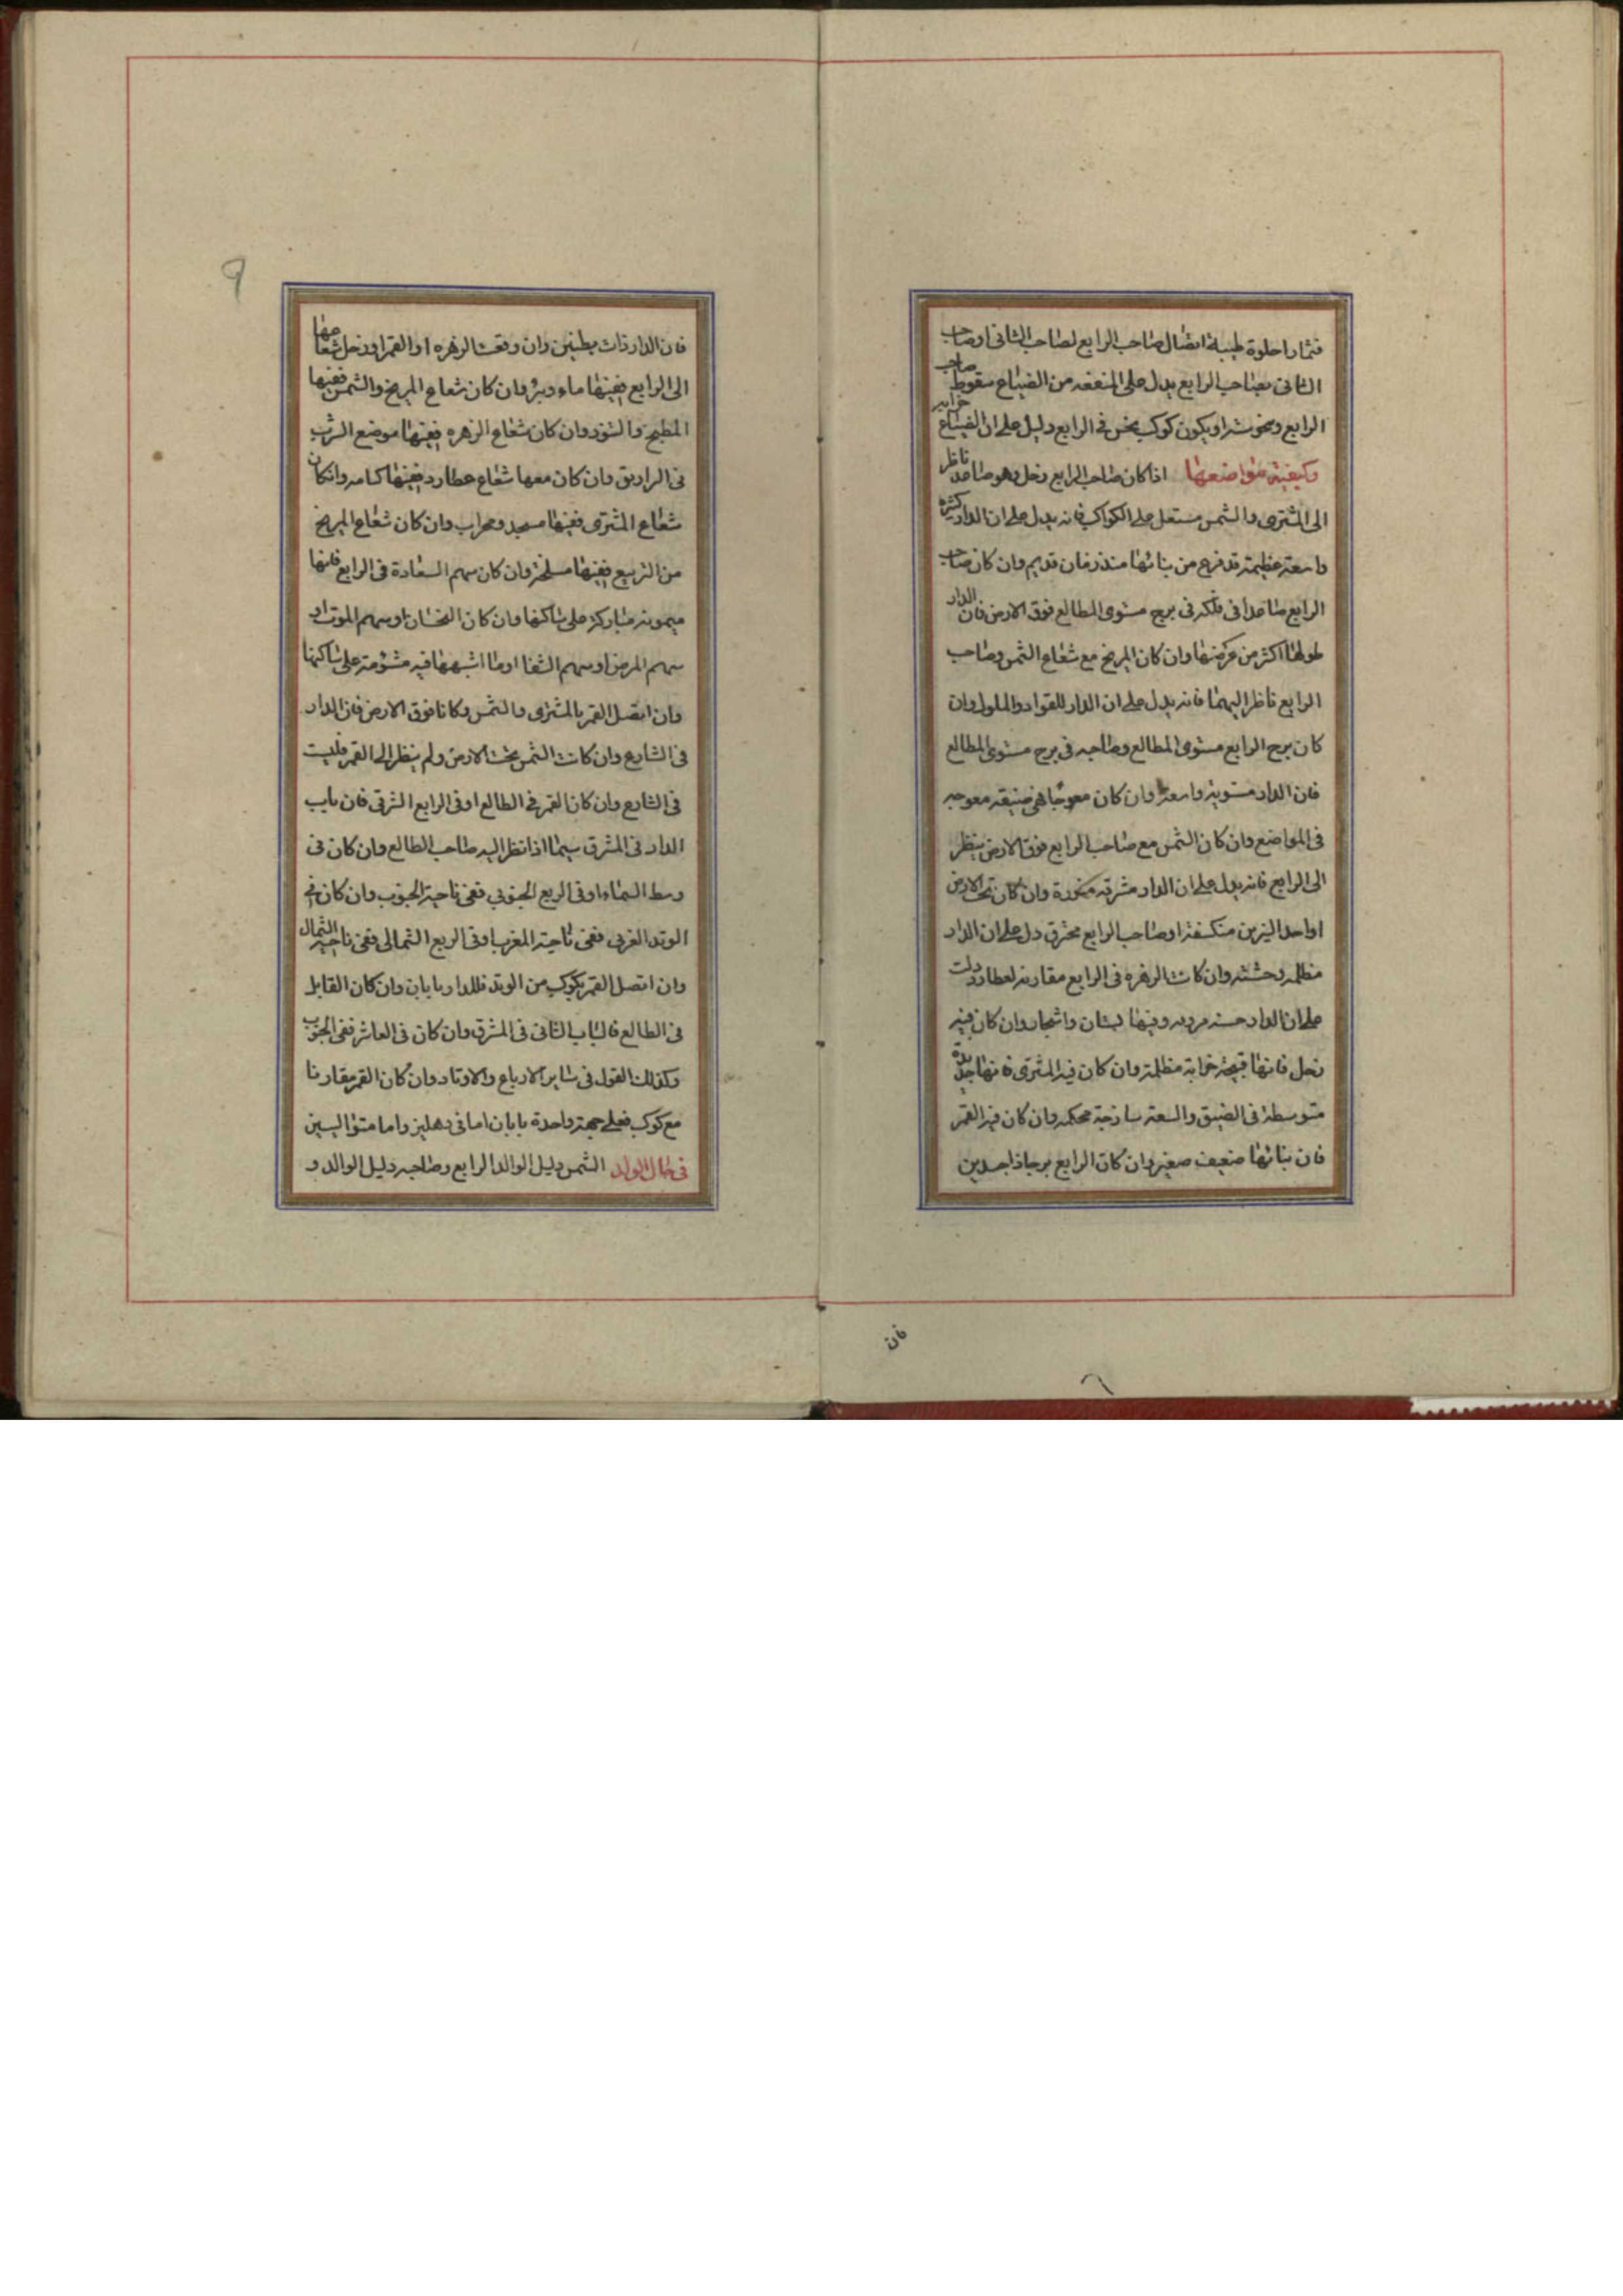 فثمارا حلوة طيبة اتصال صاحب الرابع لصاحب الثانى او صاحب
الثانى بصاحب الرابع يدل على المنفعه من الضياع سقوط صاحب
الرابع ونحوسته او يكون كوكب نحس فى الرابع دليل على ان الضياع خرابه
وكيفية مواضعها اذا كان صاحب الرابع زحل وهو صاعد ناظر
الى المشترى والشمس مستعل على الكواكب فانه يدل على ان الدار كثيرة
واسعة عظيمة قد فرغ من بنائها منذ زمان قديم وان كان صاحب
الرابع صاعدا فى فلكه فى برج مستوى المطالع فوق الارض فان الدار
طولها اكثر من عرضها وان كان المريخ مع شعاع الشمس وصاحب
الرابع ناظر اليهما فانه يدل على ان الدار للقواد والملوك وان
كان برج الرابع مستوى المطالع وصاحبه فى برج مستوى المطالع
فان الدار مستوية واسعة وان كان معوجا فهى ضيقه معوجه
فى المواضع وان كان الشمس مع صاحب الرابع فوق الارض ينظر
الى الرابع فانه يدل على ان الدار مشرقه وان كان تحت الارض
او احد النيرين منكسفة او صاحب الرابع محترق دل على ان الدار
مظلمه وحشته وان كانت الزهره فى الرابع مقارنه لعطارد دلت
على ان الدار حسنه وفيها بستان واشجار وان كان فيه
زحل فانها قبيحة خرابة مظلمة وان كان فيه المشترى فانها جيدة
متوسطة فى الضيق والسعة ساذجة محكمه وان كان فيه القمر
فان بنائها ضعيف صغير وان كان الرابع برجا ذا جسدين
فان
9
فان الدار ذات بطنين وان وقعت الزهره او القمر او زحل شعاعها
الى الرابع ففيها ماء وبئر وان كان شعاع المريخ والشمس ففيها
المطبخ والتنور وان كان شعاع الزهره ففيها موضع الشرب
فى الراويق وان كان معها شعاع عطارد ففيها وان كان
شعاع المشترى ففيها مسجد ومحراب وان كان شعاع المريخ
من التربيع ففيها مسلخة وان كان سهم السعادة فى الرابع فانها
ميمونه مباركة على ساكنها وان كان النحسان او سهم الموت او
سهم المرض او سهم الشقا او ما اشبهها فيه مشؤمة على ساكنها
وان اتصل القمر بالمشترى والشمس وكانا فوق الارض فان الدار
فى الشارع وان كانت الشمس تحت الارض ولم ينظر الى القمر فليست
فى الشارع وان كان القمر فى الطالع او فى الرابع الشرقى فان باب
الدار فى المشرق سيما اذا نظر اليه صاحب الطالع وان كان فى
وسط السماء او فى الربع الجنوبي ففى ناحية الجنوب وان كان فى
الوتد الغربى ففى ناحية المغرب او فى الربع الشمالى ففى ناحية الشمال
وان اتصل القمر بكوكب من الوتد فللدار بابان وان كان القابل
فى الطالع فالباب الثانى فى المشرق وان كان فى العاشر ففى الجنوب
وكذلك القول فى ساير الارباع والاوتاد وان كان القمر مقارنا
مع كوكب فعلى جهة واحدة بابان اما فى دهليز واما متواليين
فى حال الوالد الشمس دليل الوالد الرابع وصاحبه دليل الوالد و